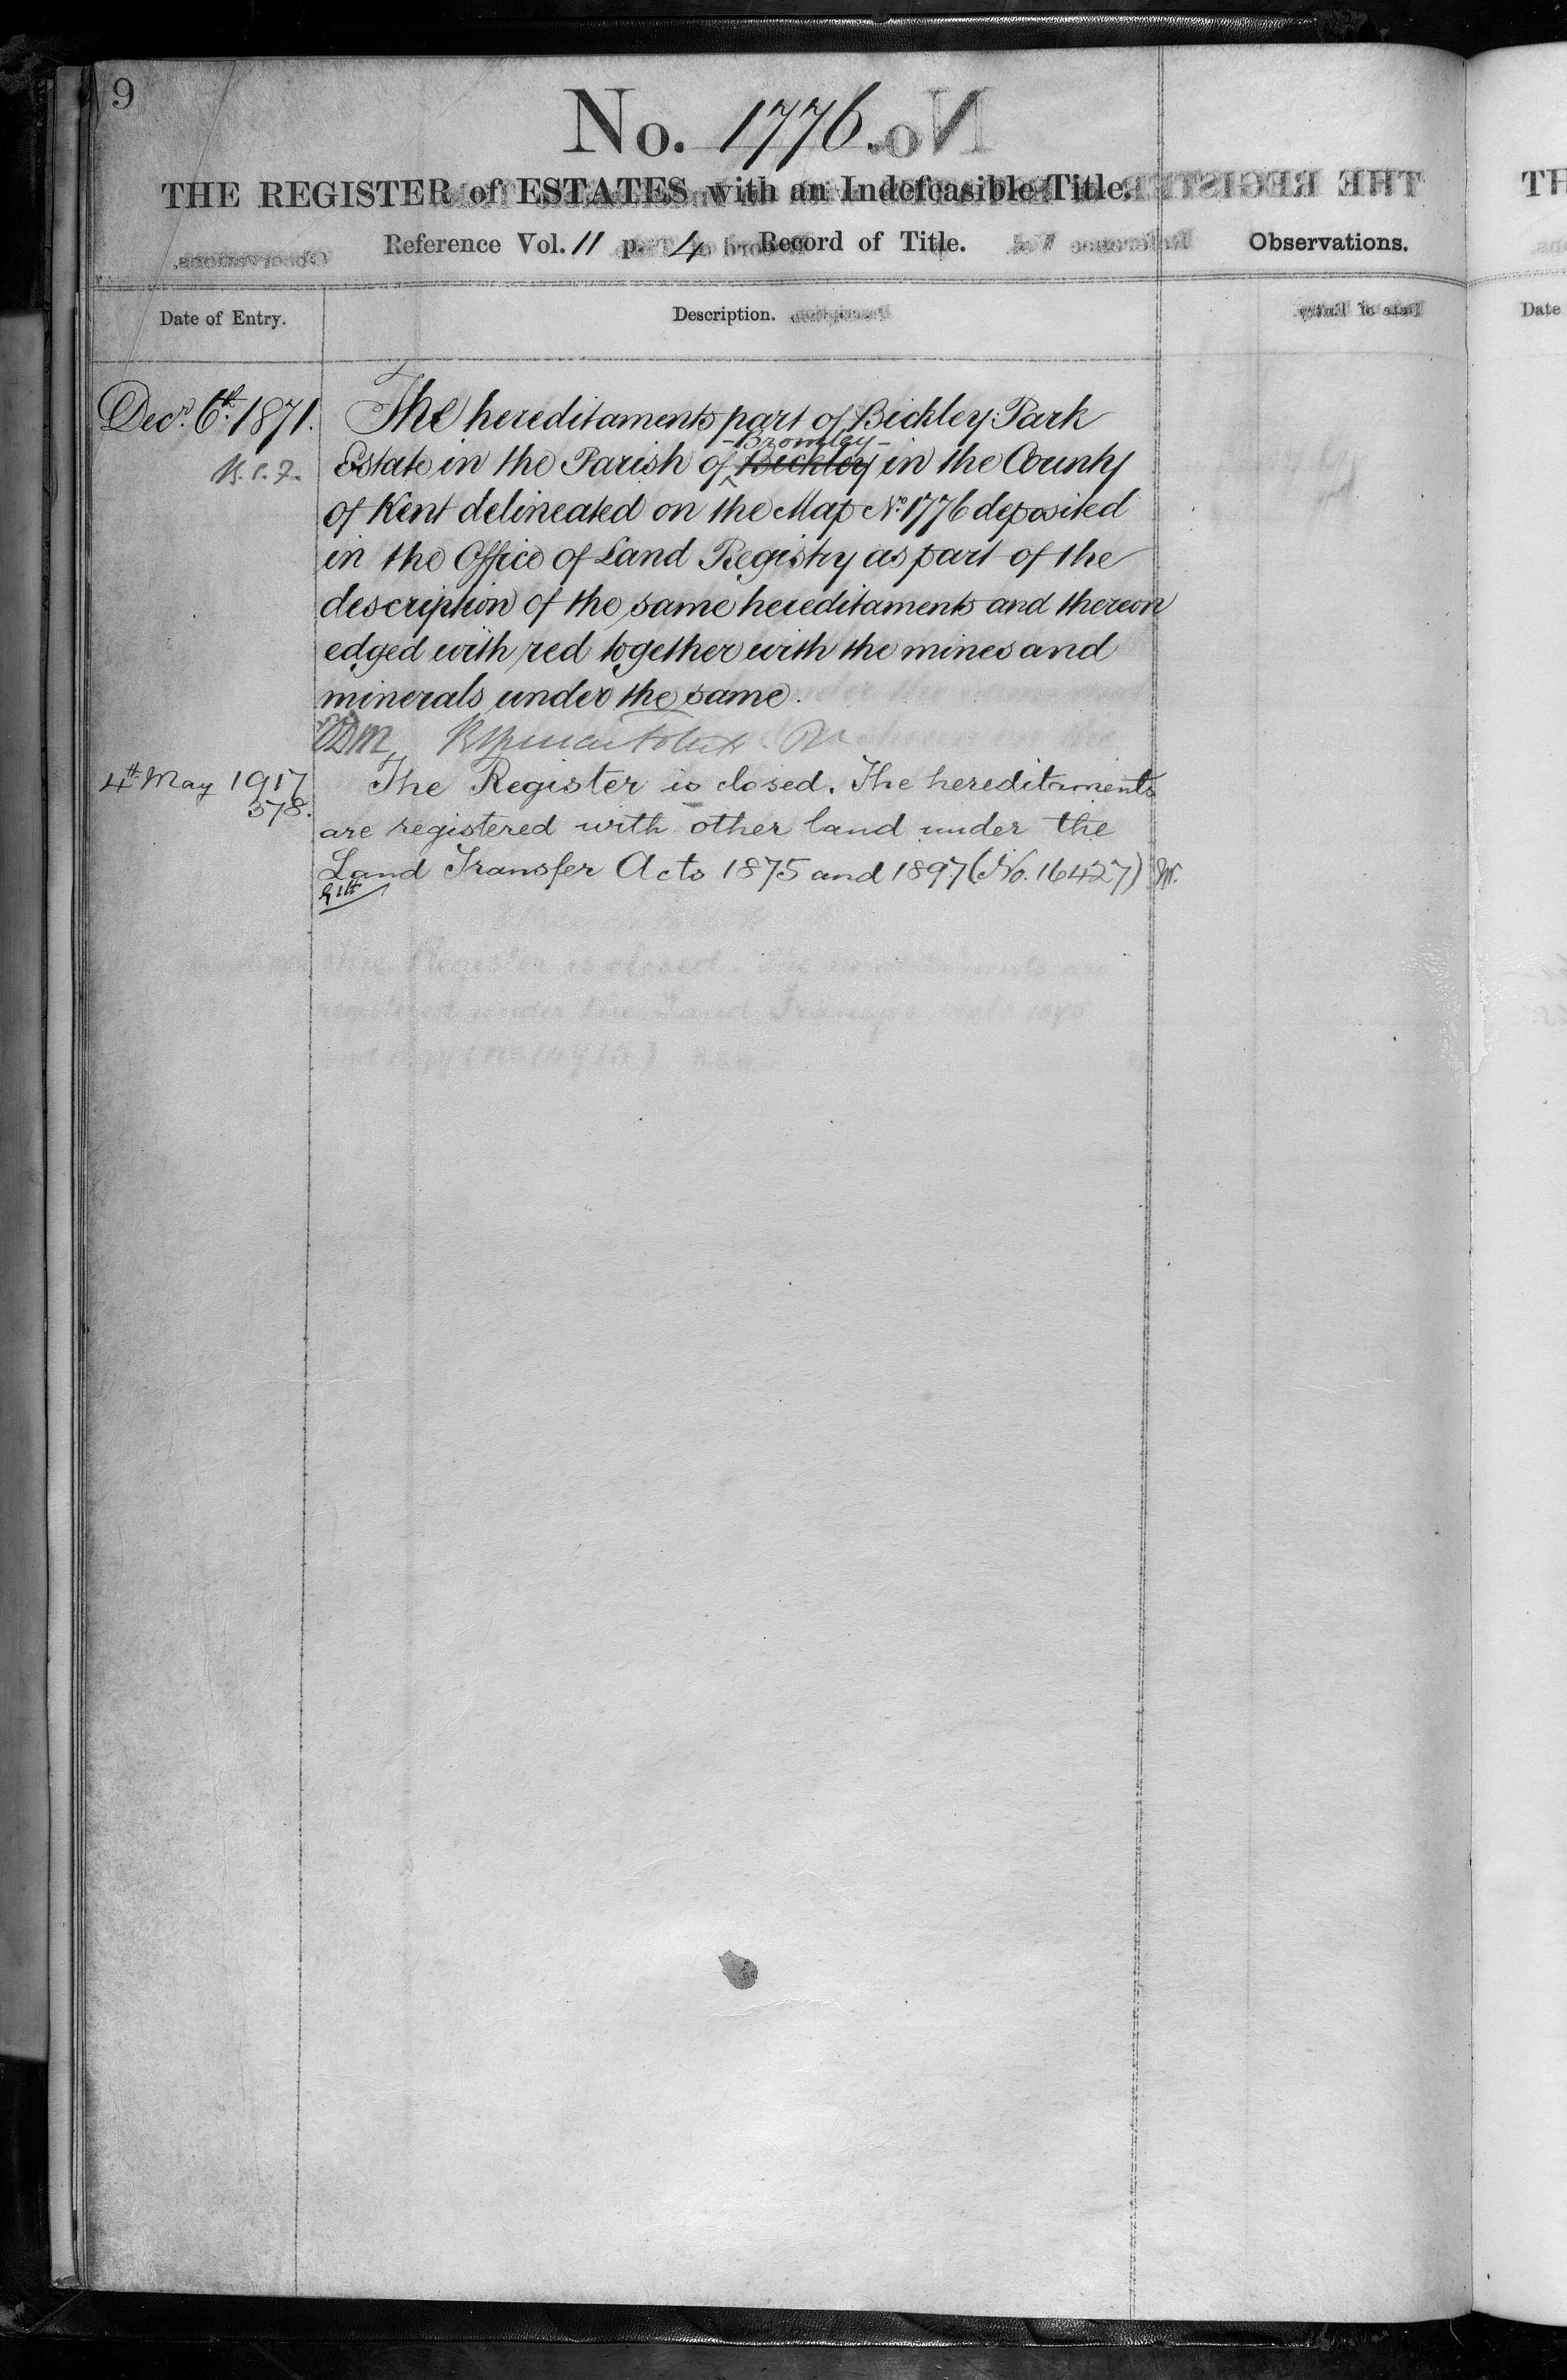 9
No. 1776.
THE REGISTER of ESTATES with an Indefeasible Title.
Reference Vol. 11 p. 4 Record of Title.
Observations.
Date of Entry.
Description.
Decr. 6th. 1871. The hereditaments part of Bickley Park
-Bromley-
Estate in the Parish of Bickley in the County
of Kent delineated on the Map No. 1776 deposited
in the Office of Land Registry as part of the
description of the same hereditaments and thereon
edged with red together with the mines and
minerals under the same.
4th May 1917 The Register is closed. The hereditaments
578.
are registered with other land under the
Land Transfer Acts 1875 and 1897 (No. 16427)
TH
Date